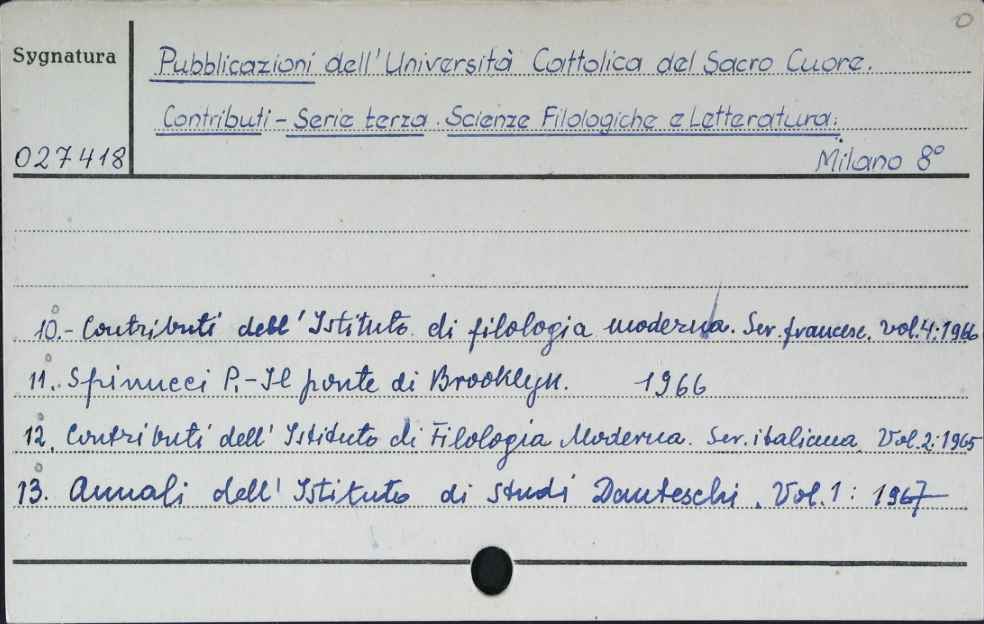 0
Sygnatura
Pubblicazioni dell'Università Cattolica del Sacro Cuore.
Contributi - Serie terza. Scienze Filologiche e Letteratura.
027418
Milano 8°
10.- Contributi dell'Istituto di filologia moderna. Ser. francese. vol.4:1966
11. Spinucci P.- Il ponte di Brooklyn. 1966
12. Contributi dell'Istituto di Filologia Moderna. Ser. italiana. Vol.2:1965
13. Annali dell'Istituto di studi Danteschi. Vol.1: 1967